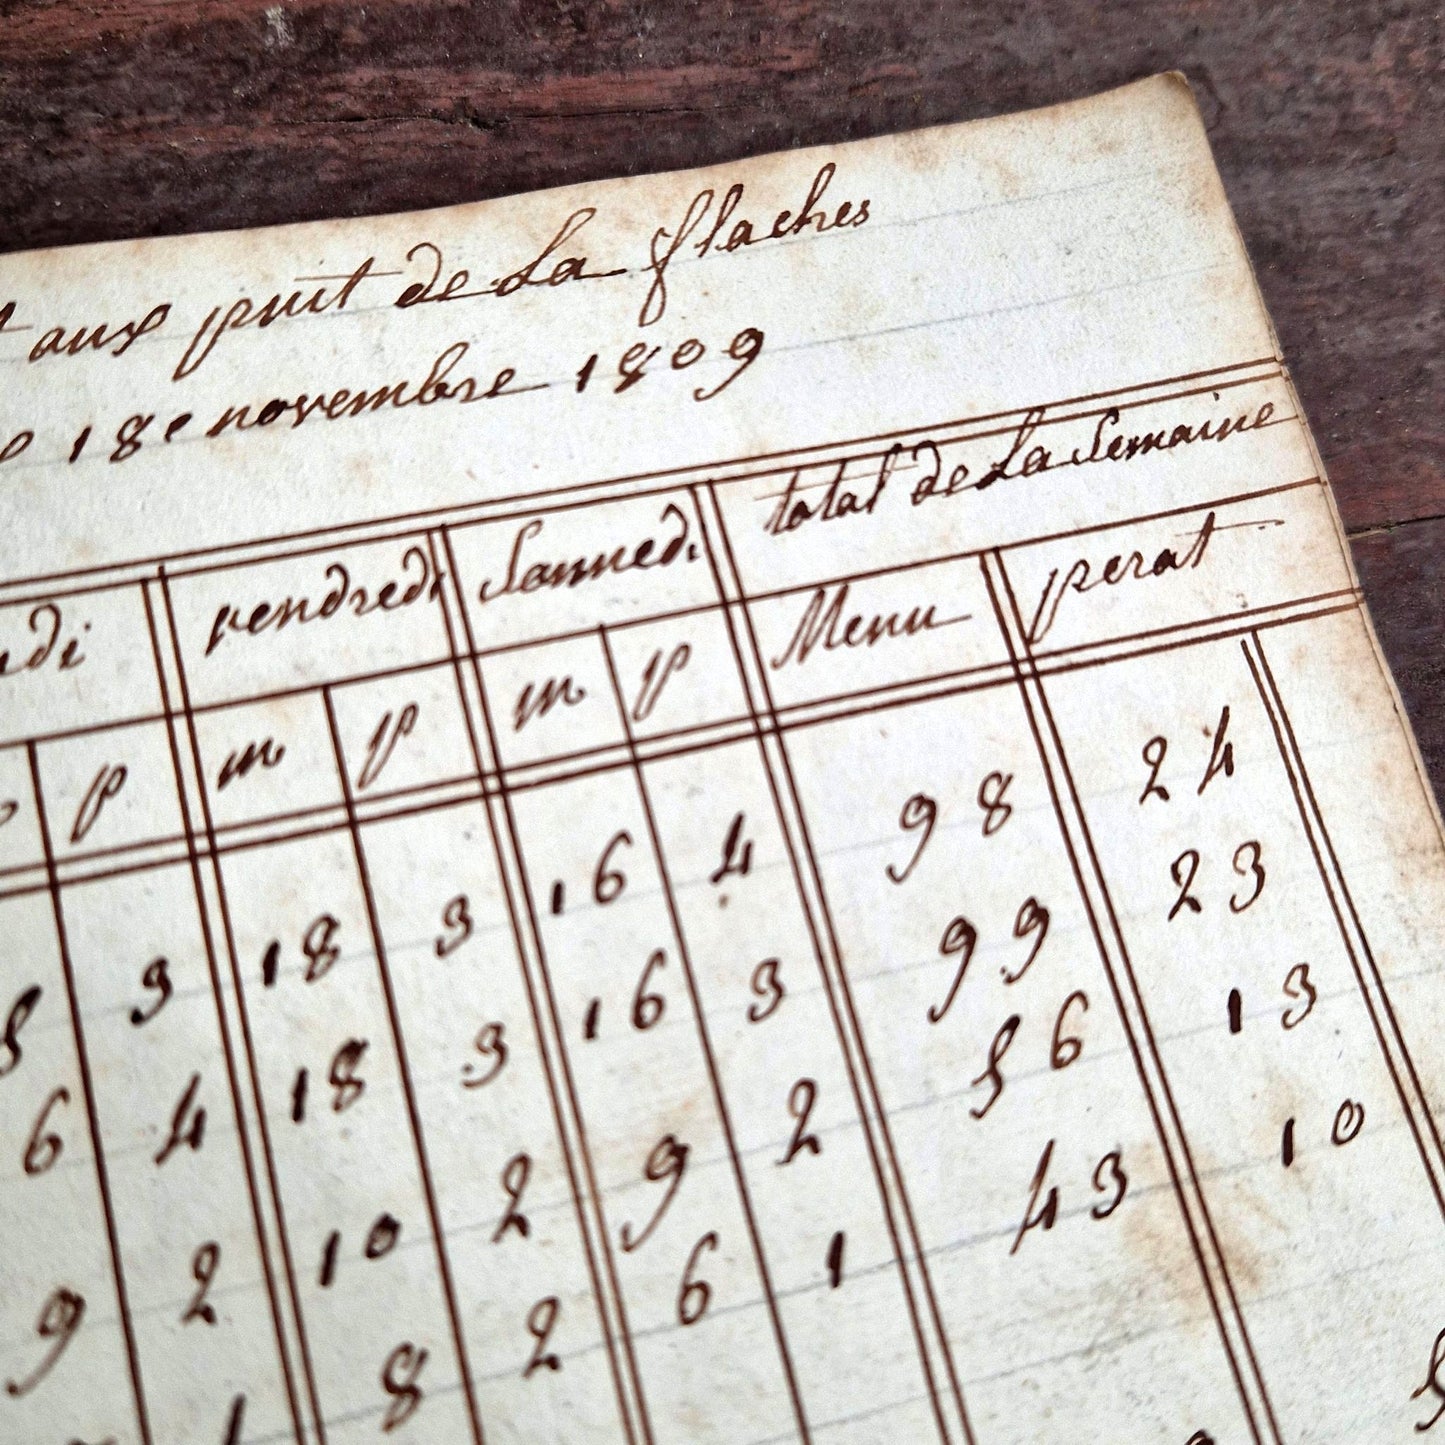 aux puit de La flaches
18e novembre 1809
vendredi Sammedi total de La Semaine
p m p m p Menu perat
3 18 3 16 4 98 24
6 4 18 3 16 3 99 23
9 2 10 2 9 2 56 13
8 2 6 1 43 10